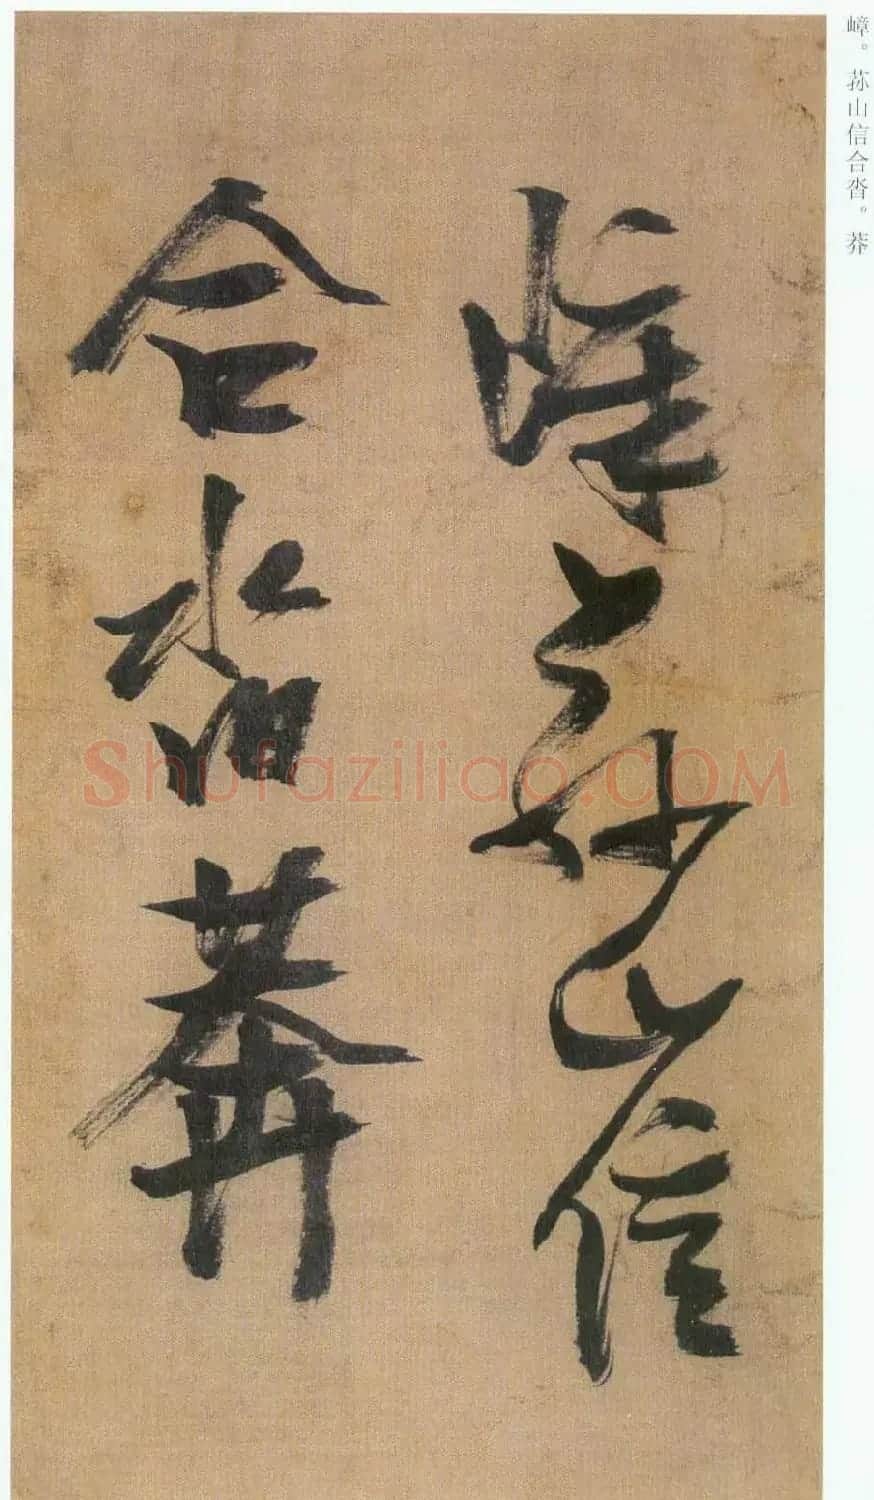 嶂。荪山信合沓。莽
嶂荪山信
合沓莽
Shufaziliao.COM